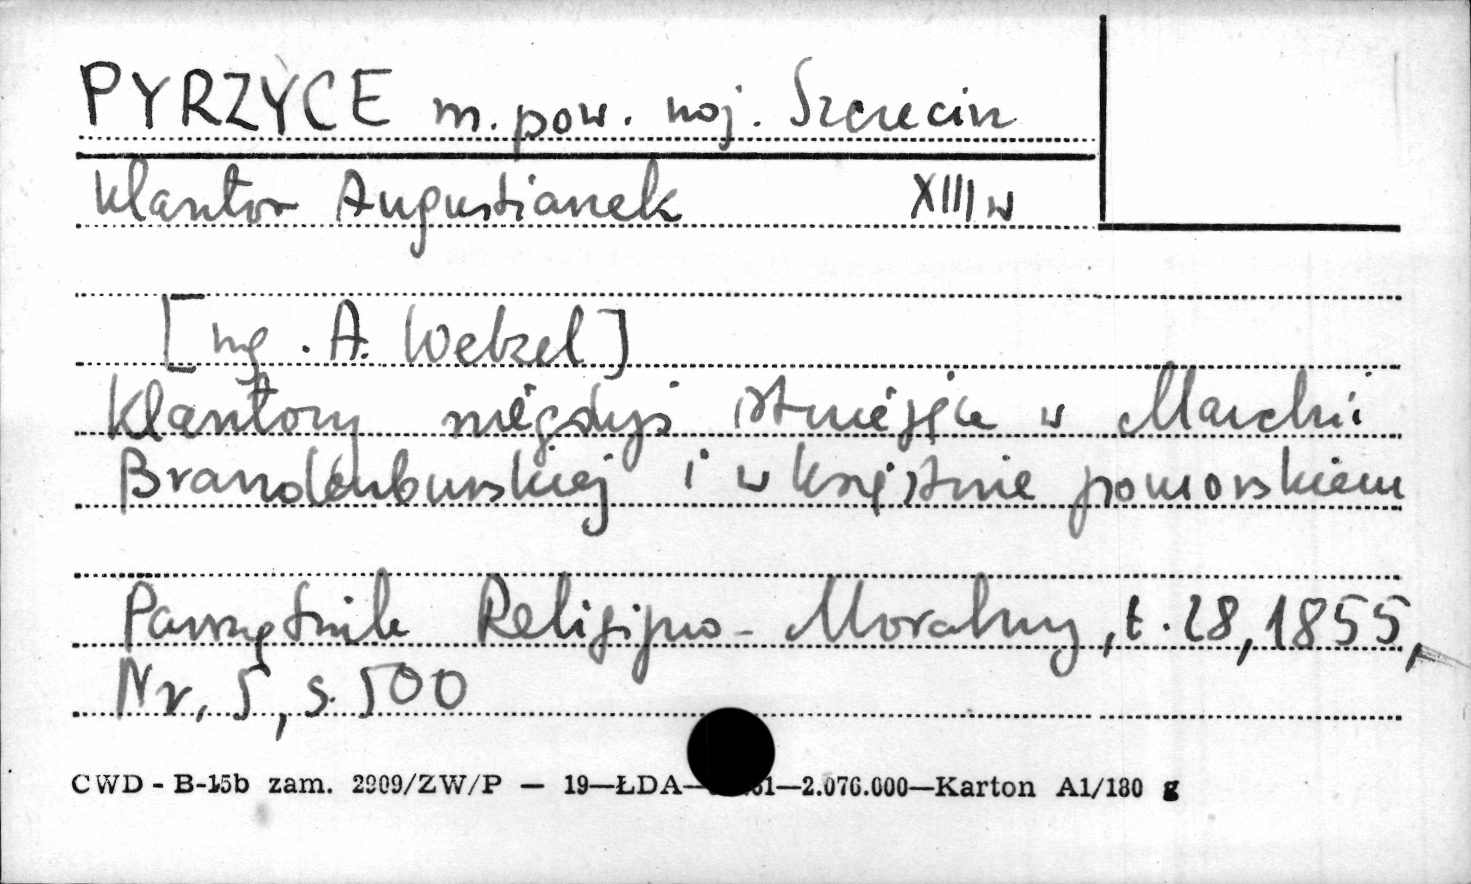 PYRZYCE m. pow. woj. Szczecin
Klasztor Augustianek XIII w
[wg. A. Wetzel]
Klasztory niegdyś istniejące w Marchii
Brandenburskiej i w księstwie pomorskiem
Pamiętnik Religijno-Moralny, t. 28, 1855,
Nr. 5, s. 500
CWD - B-15b zam. 2909/ZW/P — 19—ŁDA— 61—2.076.000—Karton A1/180 g